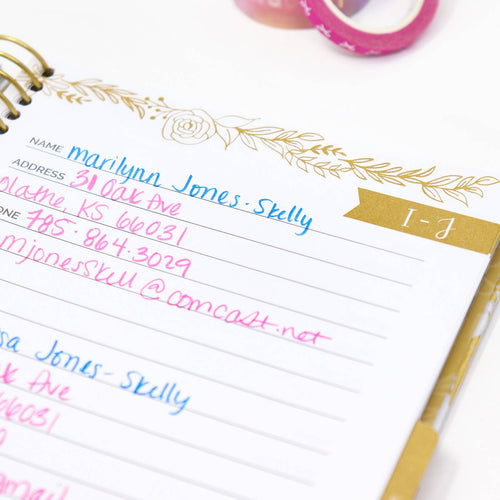 I - J
NAME marilynn Jones - Skelly
ADDRESS 31 Oak Ave
Olathe, KS 66031
PHONE 785 - 864 - 3029
mjonesskell@comcast.net
Jones - Skelly
Ave
66031